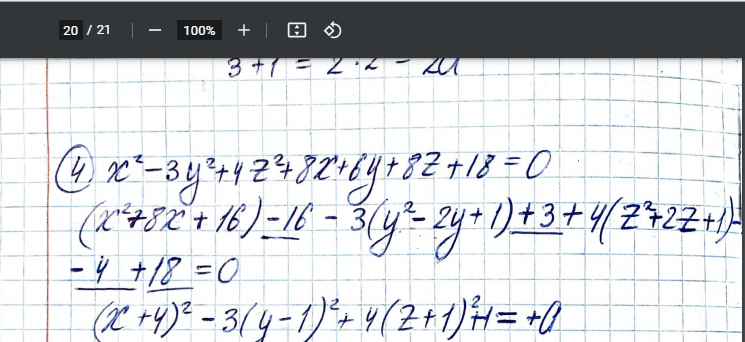 20 / 21 100%
④ x²-3y²+4z²+8x+6y+8z+18=0
(x²+8x+16)-16-3(y²-2y+1)+3+4(z²+2z+1)-
-4+18=0
(x+4)²-3(y-1)²+4(z+1)²+1=